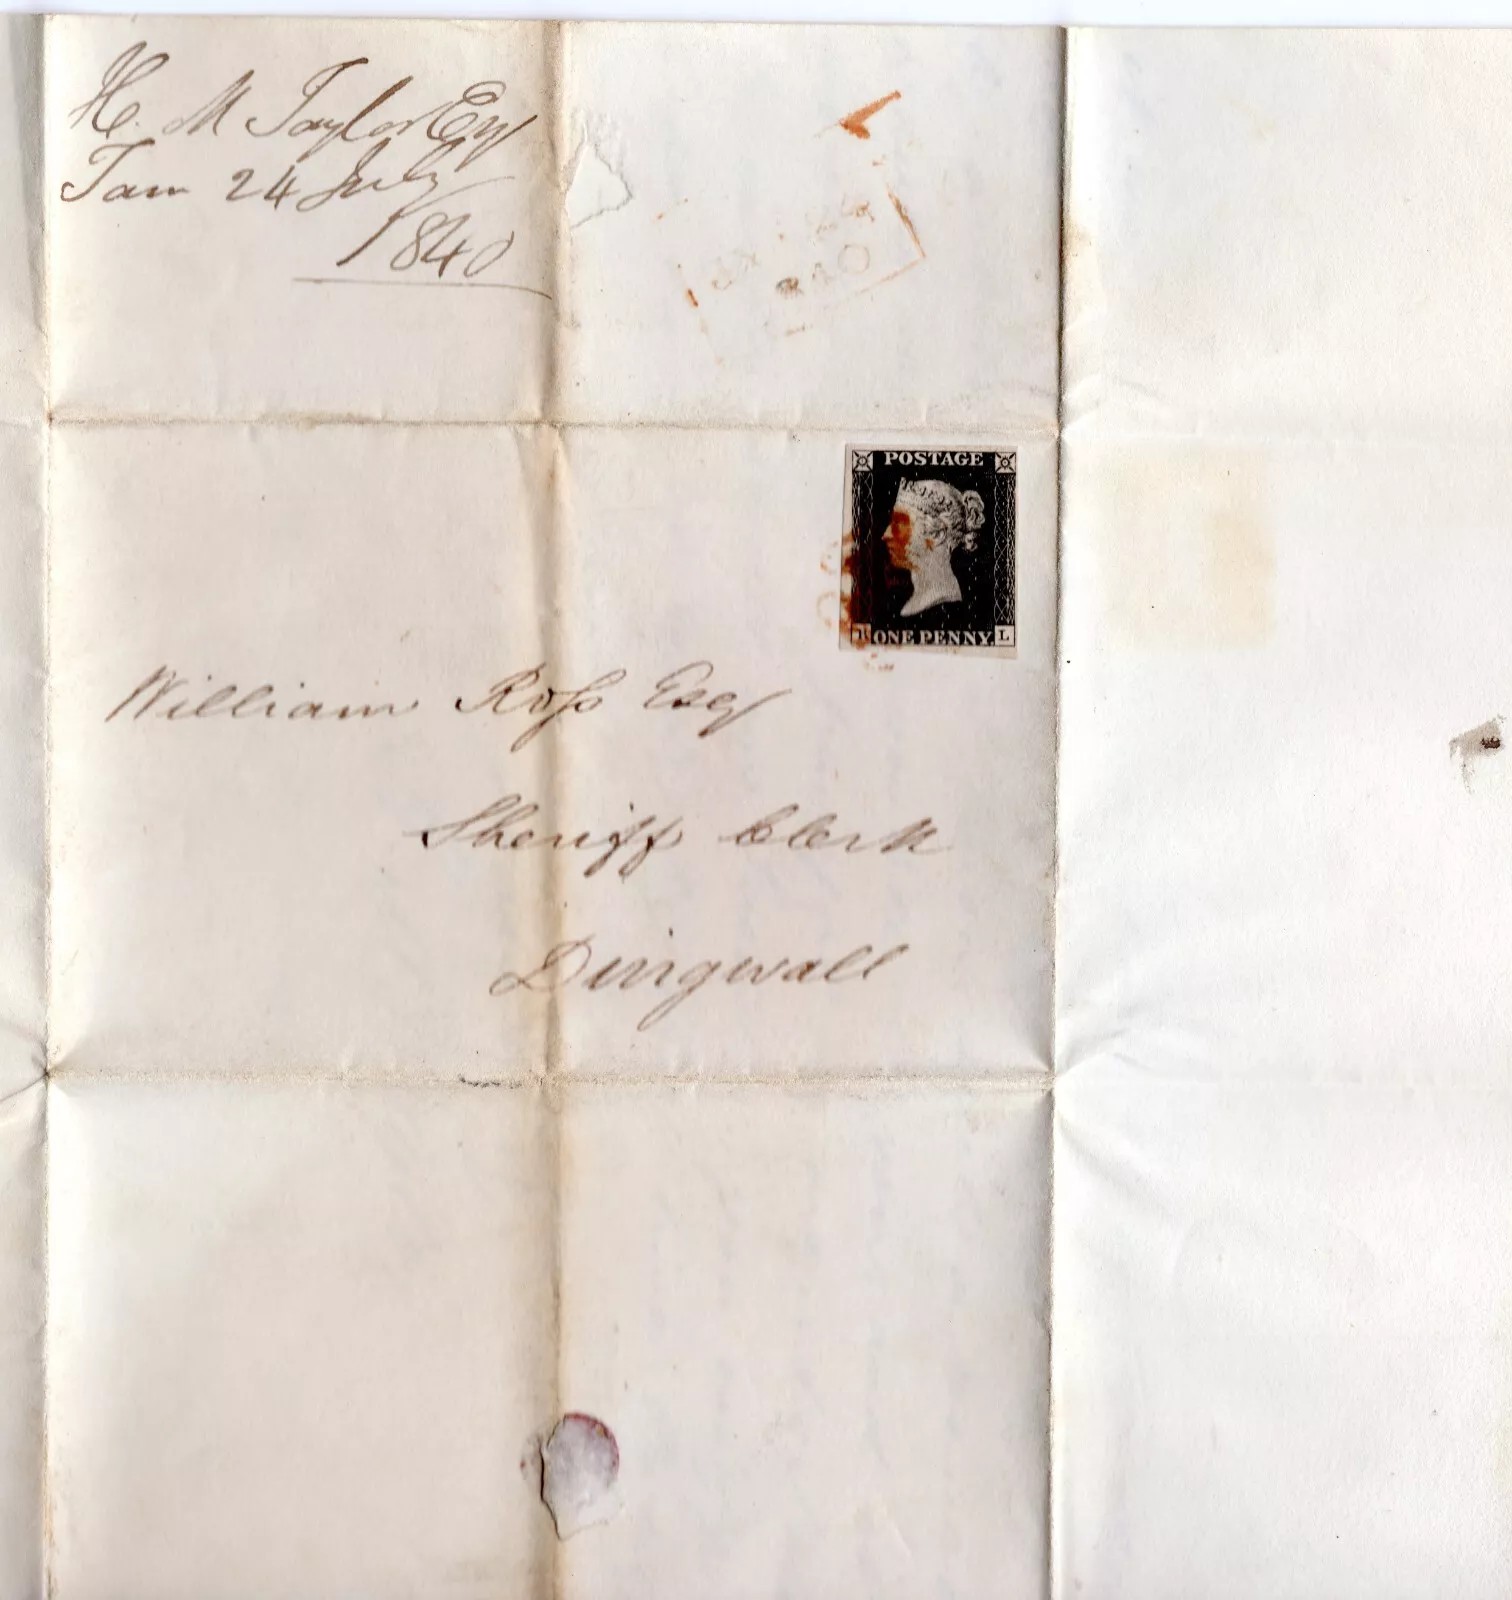 H. M Taylor Esq
Tain 24 July
1840
840
POSTAGE
ONE PENNY.
L
William Ross Esq
Sheriff Clerk
Dingwall